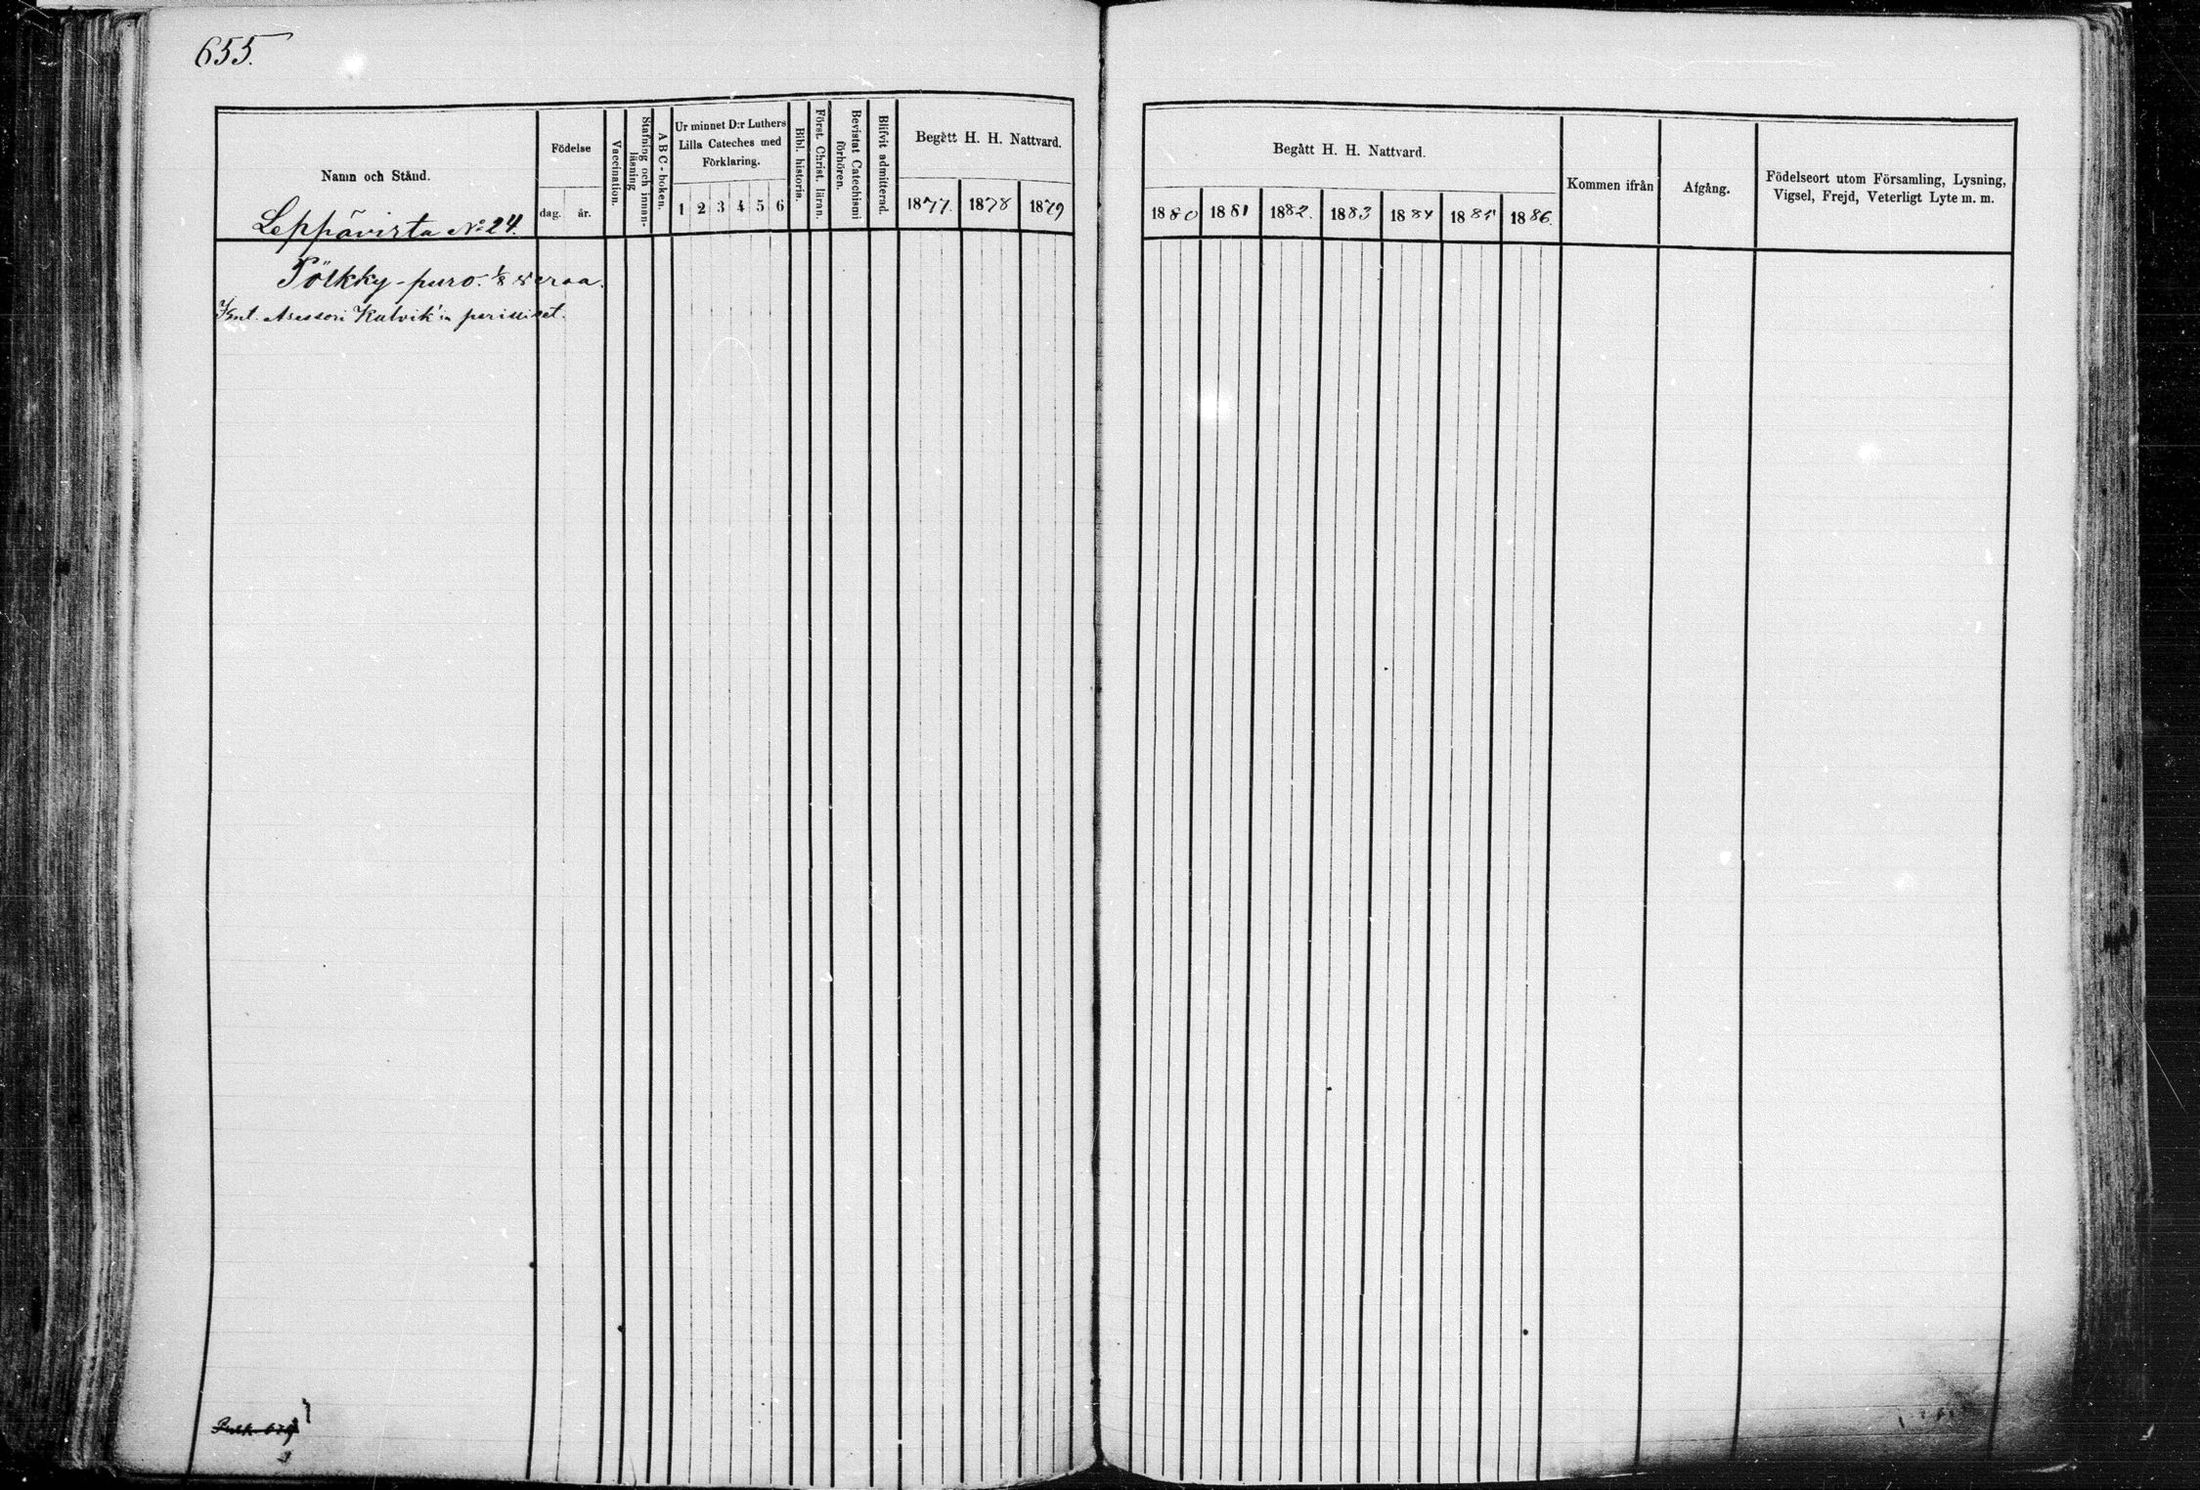 655.
Namn och Stånd.
Leppävirta No 24.
Födelse
dag. år.
Vaccination.
Stafning och innan-
läsning
ABC-boken.
Ur minnet D:r Luthers
Lilla Cateches med
Förklaring.
1 2 3 4 5 6
Bibl. historia.
Först. Christ. läran.
Bevistat Catechismi
förhören.
Blifvit admitterad.
Begått H. H. Nattvard.
1877. 1878 1879
Pölkky-puro. 1/8
Asessori perilliset.
Begått H. H. Nattvard.
1880 1881 1882. 1883 1884 1885 1886.
Kommen ifrån
Afgång.
Födelseort utom Församling, Lysning,
Vigsel, Frejd, Veterligt Lyte m. m.